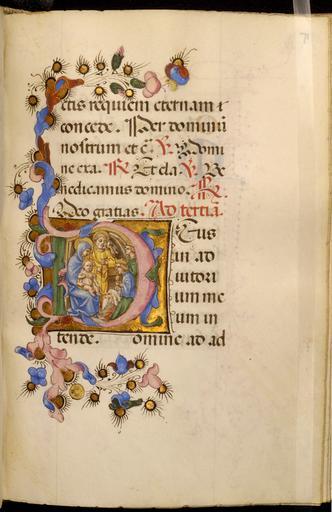 ctis requiem eternam ⁊
concede. Per dominū
nostrum et c̄. ℣. Domi
ne exa. ℟. Et cla. ℣. Be
nedicamus domino. ℟.
Deo gratias. Ad tertiā.
Eus
in ad
iutori
um me
um in
tende. Domine ad ad